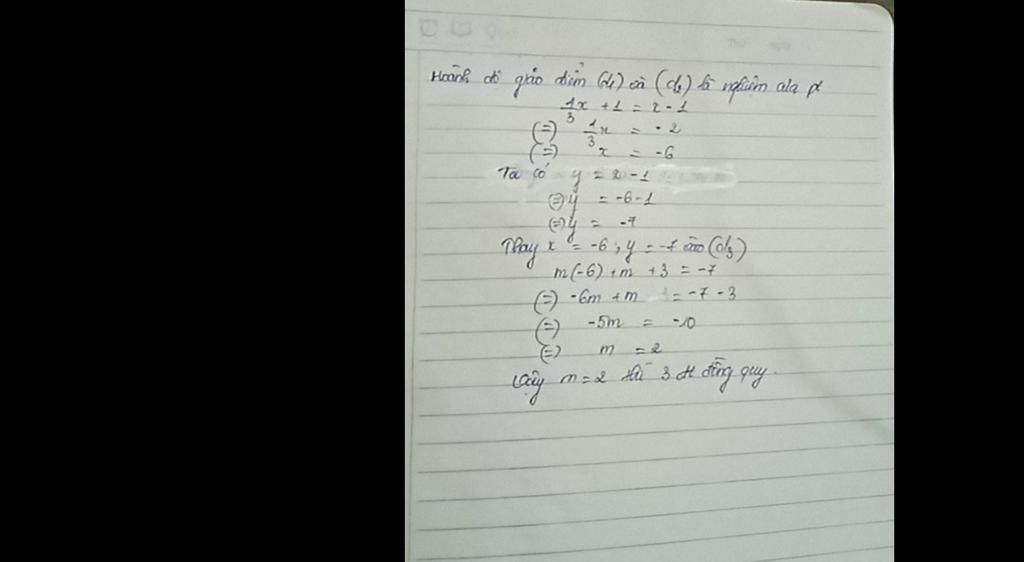 Hoành độ giao điểm (d₁) và (d₂) là nghiệm của pt
1/3 x + 1 = x - 1
(=) 1/3 x = - 2
(=) x = -6
Ta có y = x - 1
(=) y = -6 - 1
(=) y = -7
Thay x = -6 ; y = -7 vào (d₃)
m(-6) + m + 3 = -7
(=) -6m + m = -7 - 3
(=) -5m = -10
(=) m = 2
Vậy m = 2 thì 3 đt đồng quy.